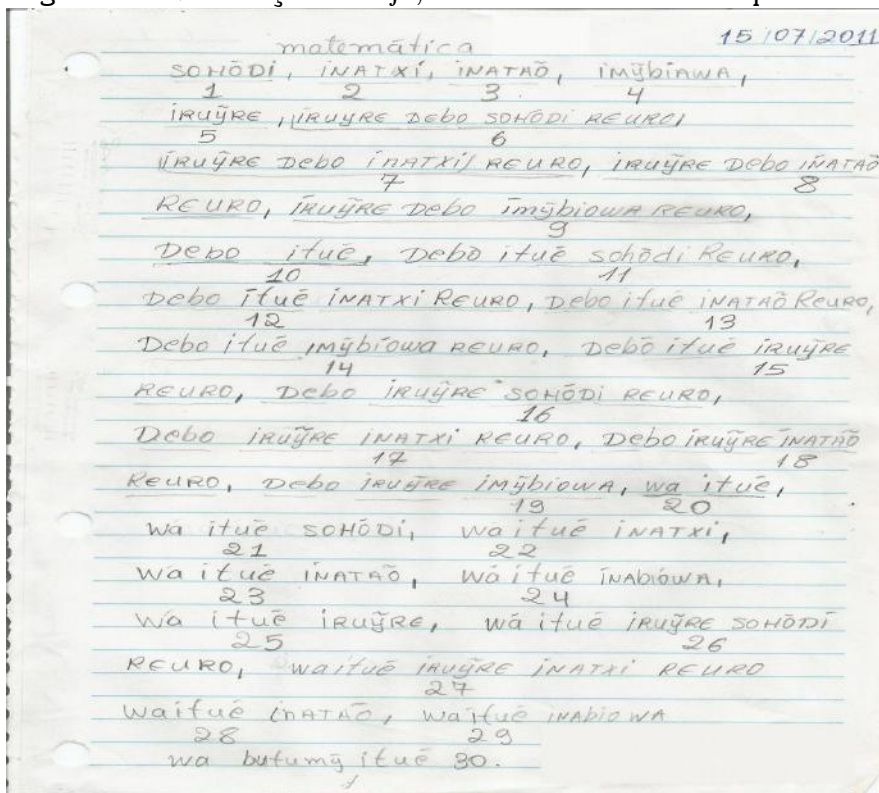 15/07/2011
matemática
SOHÕDI, INATXI, INATAÕ, IMỸBIAWA,
1 2 3 4
IRUỸRE, IRUYRE Debo SOHÕDI REURO,
5 6
IRUỸRE Debo INATXI/ REURO, IRUỸRE Debo INATAÕ
7 8
REURO, IRUỸRE Debo imỹbiowa REURO,
9
Debo ituē, Debo ituē sohõdi REURO,
10 11
Debo ituē INATXI REURO, Debo ituē INATAÕ REURO,
12 13
Debo ituē imỹbiowa REURO, Debõ ituē IRUỸRE
14 15
REURO, Debo IRUỸRE SOHÕDI REURO,
16
Debo IRUỸRE INATXI REURO, Debo IRUỸRE INATAÕ
17 18
REURO, Debo IRUỸRE IMỸBIOWA, wa ituē,
19 20
Wa ituē SOHÕDI, wa ituē INATXI,
21 22
Wa ituē INATAÕ, Wa ituē INABIOWA,
23 24
Wa ituē IRUỸRE, wa ituē IRUỸRE SOHÕDI
25 26
REURO, waituē IRUỸRE INATXI REURO
27
Waituē INATAÕ, waituē INABIOWA
28 29
wa butumỹ ituē 30.